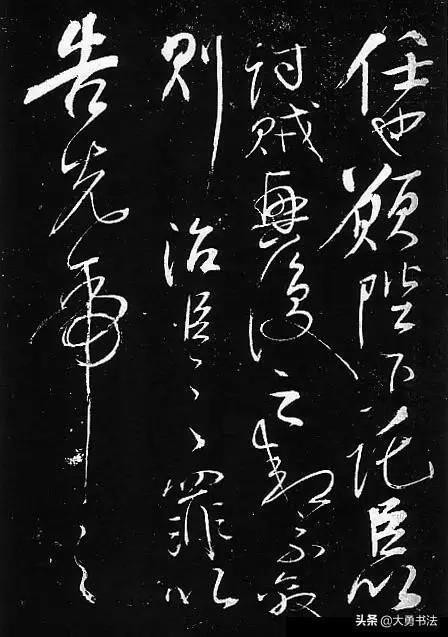 任也願陛下託臣以
討賊興復之効不效
則治臣之罪以
告先帝之
头条 @大勇书法